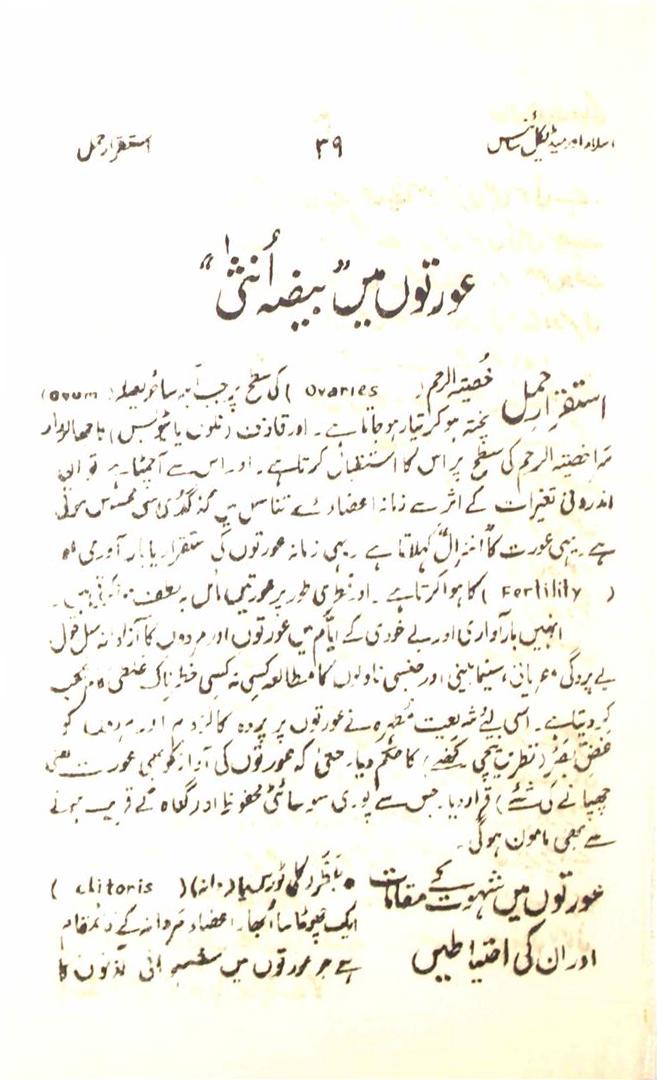 اسلام اور میڈیکل سائنس ۳۹ استقرار حمل
عورتوں میں ”بیضہ اُنثیٰ“
استقرارِ حمل خُصیتہ الرحم ( Ovaries ) کی سطح پر جب
(Ovum) پختہ ہو کر تیار ہو جاتا ہے۔ اور قاذف (نلوں یا ٹیوبس) با جھالردار
خصیتہ الرحم کی سطح پر اس کا استقبال کرتا ہے۔ اور اس سے آچمٹا ہے تو ان
اندرونی تغیرات کے اثر سے زنانہ اعضائے تناسل میں گدگدی سی محسوس ہوتی
ہے۔ یہی عورت کا ”انزال“ کہلاتا ہے۔ یہی زمانہ عورتوں کی استقرار یا بار آوری
( Fertility ) کا ہوا کرتا ہے۔ اور فطری طور پر عورتیں اس
انہیں بارآواری اور بے خودی کے ایّام میں عورتوں اور مردوں کا آزادانہ میل جول
بے پردگی، عریانی، سینما بینی اور جنسی ناولوں کا مطالعہ کسی نہ کسی خطرناک غلطی کا مرتکب
کر دیتا ہے۔ اسی لئے شریعت مطہرہ نے عورتوں پر پردہ کا لزوم اور مردوں کو
غضِّ بصَر (نظریں نیچی رکھنے) کا حکم دیا۔ حتیٰ کہ عورتوں کی آواز کو بھی عورت یعنی
چھپانے کی شئے) قرار دیا۔ جس سے پوری سوسائٹی محفوظ اور گناہ کے قریب ہونے
سے بھی مامون ہوگی۔
عورتوں میں شہوت کے مقامات
اور ان کی احتیاطیں
( clitoris )
ایک چھوٹا سا اُبھار اعضاء مردانہ کے قائم مقام
ہے جو عورتوں میں